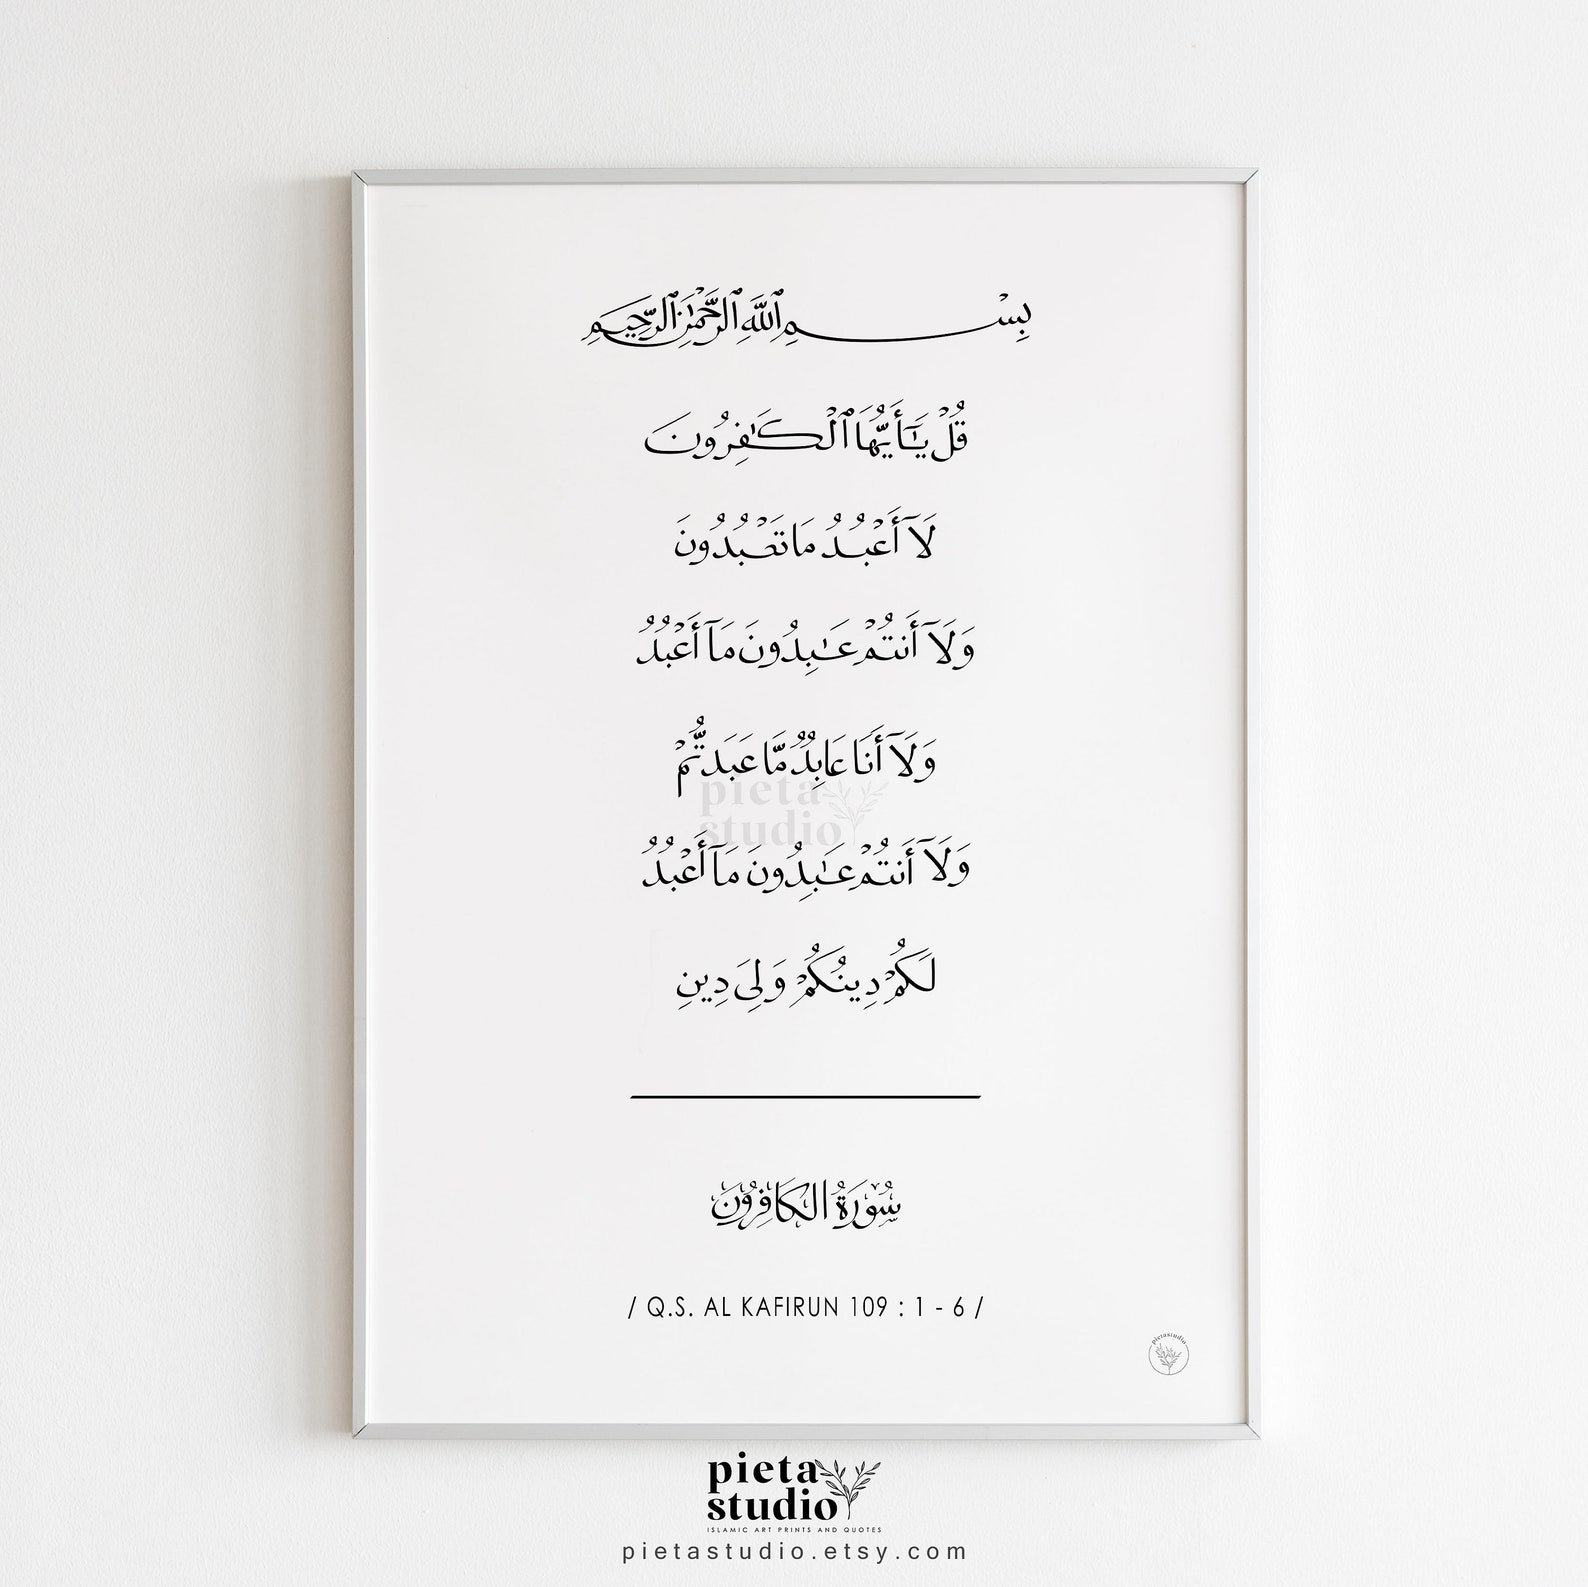 بِسْمِ ٱللَّهِ ٱلرَّحْمَٰنِ ٱلرَّحِيمِ
قُلْ يَٰٓأَيُّهَا ٱلْكَٰفِرُونَ
لَآ أَعْبُدُ مَا تَعْبُدُونَ
وَلَآ أَنتُمْ عَٰبِدُونَ مَآ أَعْبُدُ
وَلَآ أَنَا۠ عَابِدٌ مَّا عَبَدتُّمْ
pieta
studio
وَلَآ أَنتُمْ عَٰبِدُونَ مَآ أَعْبُدُ
لَكُمْ دِينُكُمْ وَلِىَ دِينِ
سُوْرَةُ الكَافِرُونَ
/ Q.S. AL KAFIRUN 109 : 1 - 6 /
pietastudio
pieta
studio
ISLAMIC ART PRINTS AND QUOTES
pietastudio.etsy.com